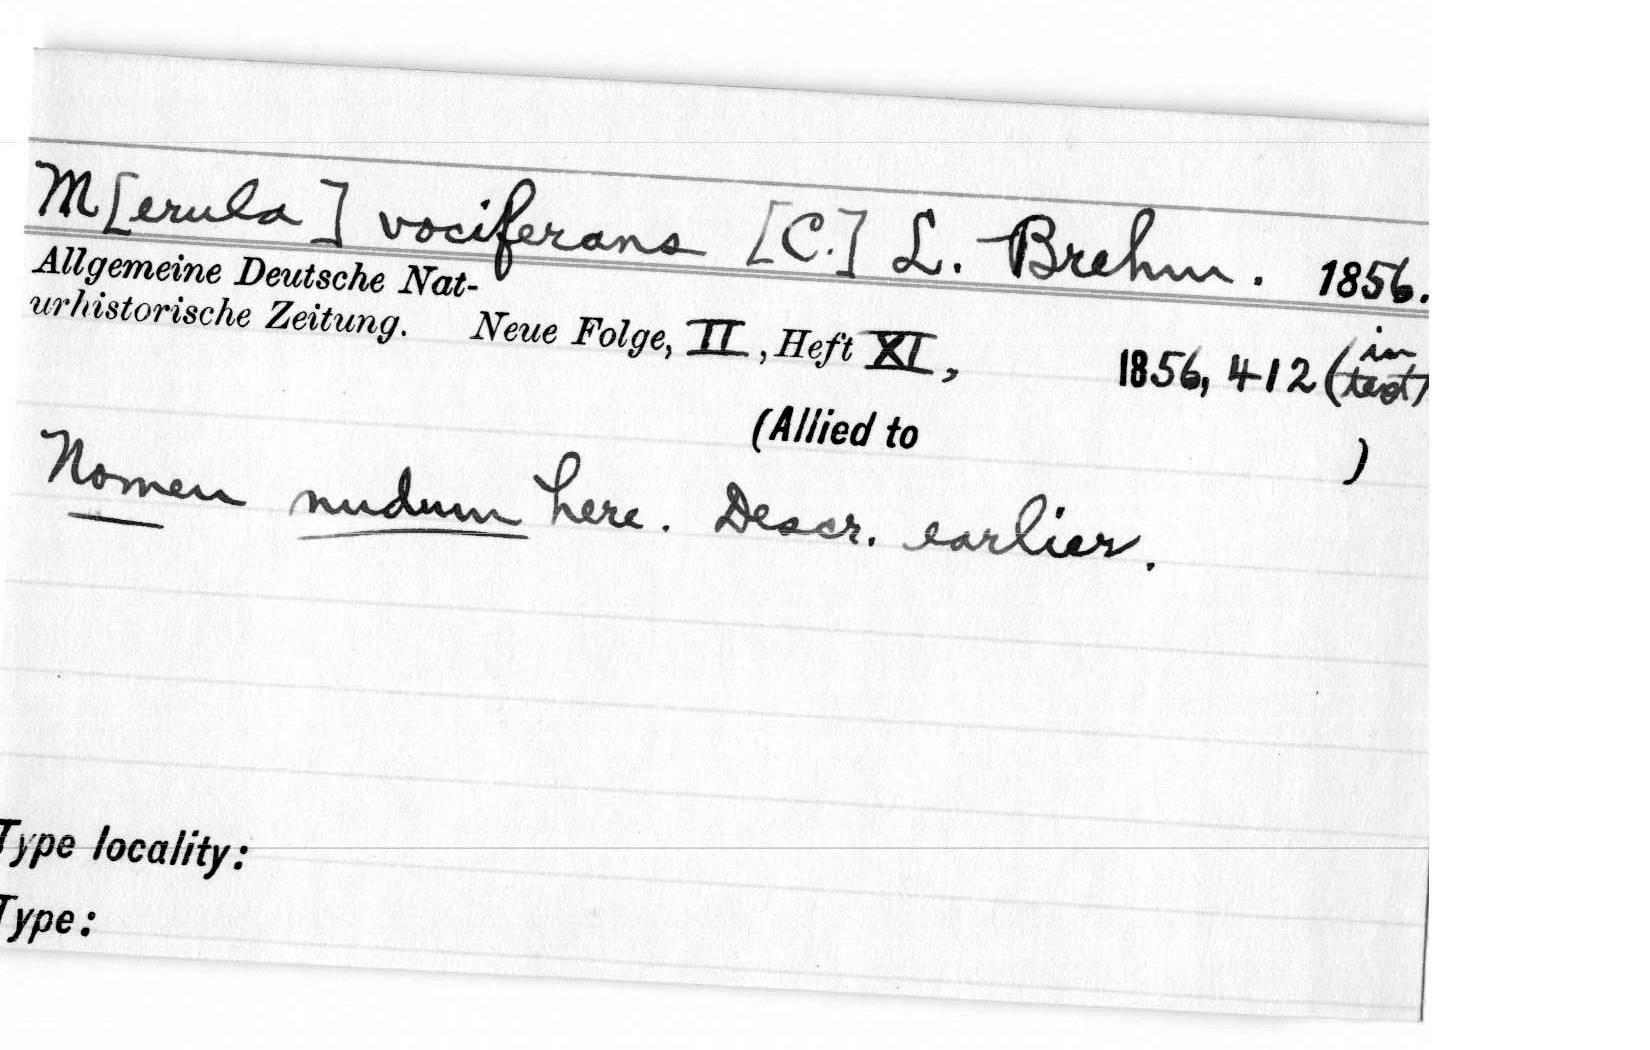 M[erula] vociferans [C.] L. Brehm. 1856.
Allgemeine Deutsche Nat-
urhistorische Zeitung. Neue Folge, II, Heft XI, 1856, 412 (in text)
(Allied to )
Nomen nudum here. Descr. earlier.
Type locality:
Type: